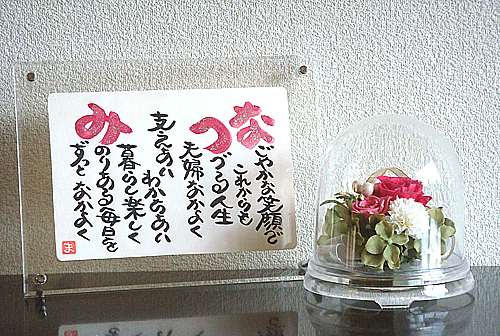 なごやかな笑顔で
これからも
つづる人生
夫婦なかよく
支えあい
わかちあい
暮らし楽しく
みのりある毎日を
ずっと なかよく
ま